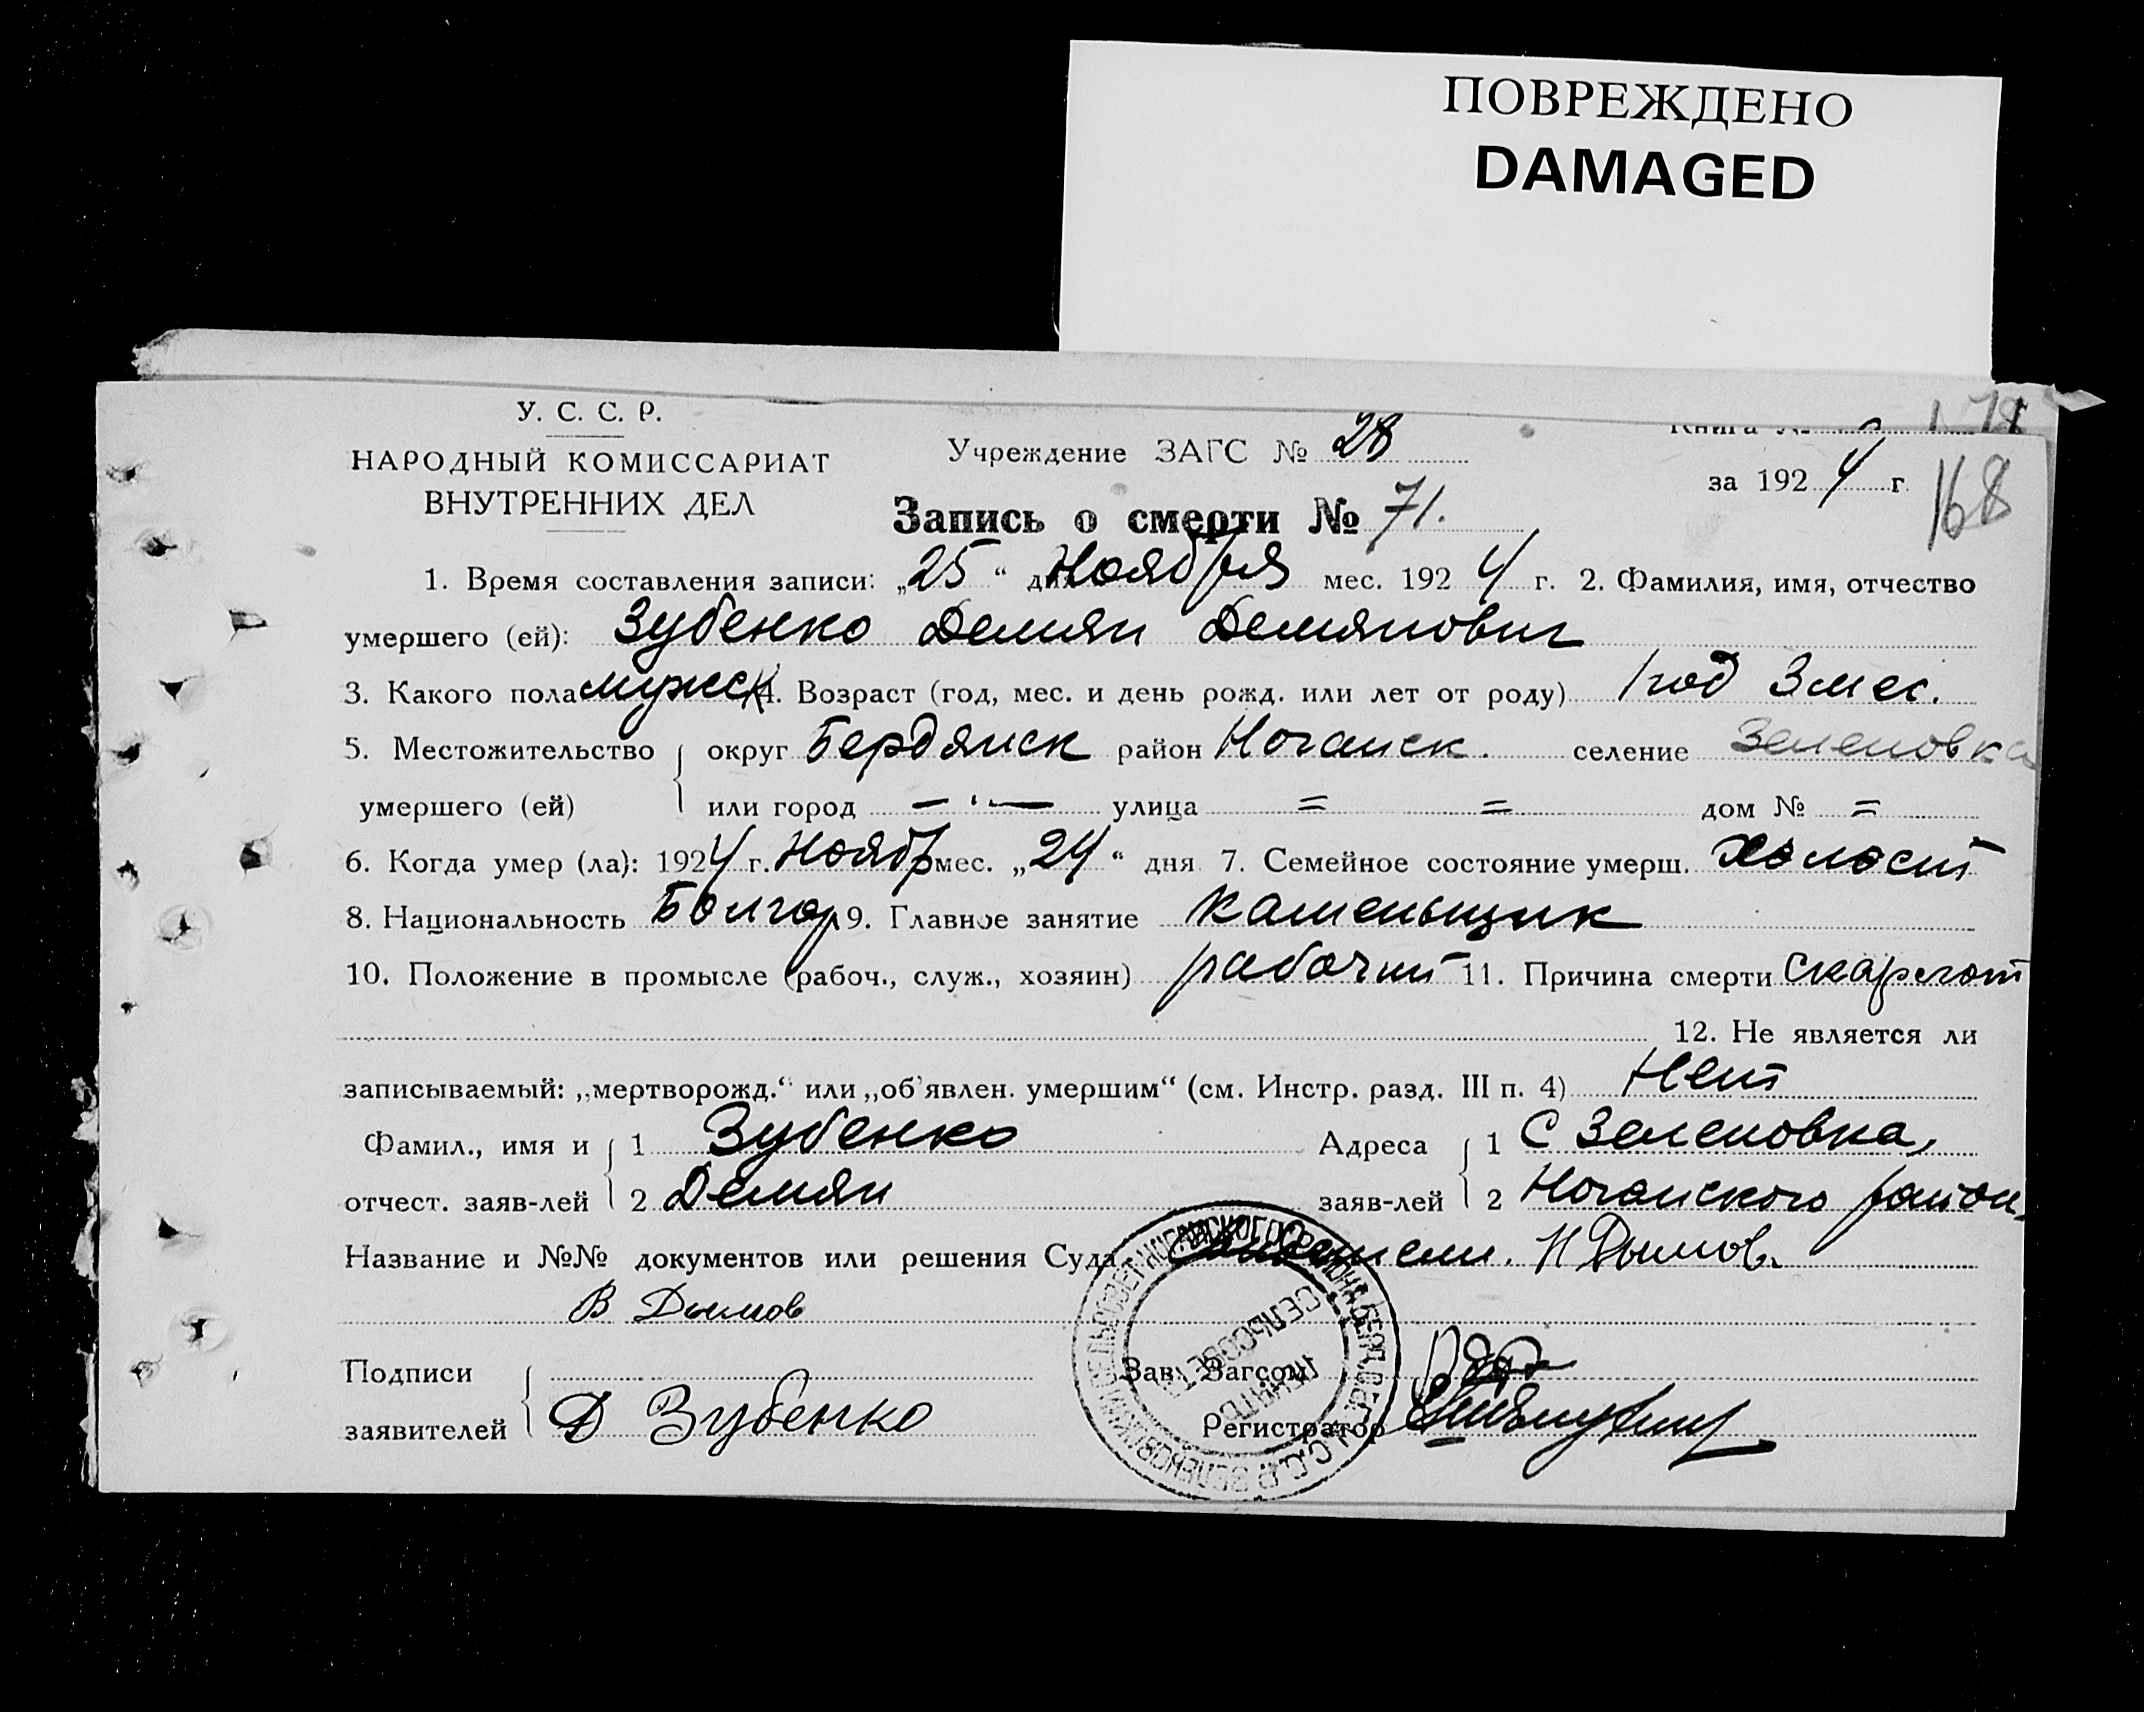 ПОВРЕЖДЕНО
DAMAGED
У. С. С. Р.
НАРОДНЫЙ КОМИССАРИАТ
ВНУТРЕННИХ ДЕЛ
Учреждение ЗАГС № 28
Книга №
за 1924 г.
168
Запись о смерти № 71.
1. Время составления записи: „25“ дня Ноября мес. 1924 г. 2. Фамилия, имя, отчество
умершего (ей): Зубенко Демян Демянович
3. Какого пола мужск 4. Возраст (год, мес. и день рожд. или лет от роду) 1 год 3 мес.
5. Местожительство округ Бердянск район Ногайск. селение Зеленовка
умершего (ей) или город — " — улица = = дом № =
6. Когда умер (ла): 1924 г. Ноябр мес. „24“ дня 7. Семейное состояние умерш. холост
8. Национальность Болгар 9. Главное занятие каменьщик
10. Положение в промысле (рабоч., служ., хозяин) рабочий 11. Причина смерти Скарлат
12. Не является ли
записываемый: „мертворожд.“ или „об'явлен. умершим“ (см. Инстр. разд. III п. 4) Нет
Фамил., имя и 1 Зубенко Адреса 1 С Зеленовка,
отчест. заяв-лей 2 Демян заяв-лей 2 Ногайского район.
Название и №№ документов или решения Суда Свидетели. Н Дымов.
В Дымов
Подписи Зав. Загсом
заявителей Д Зубенко Регистратор